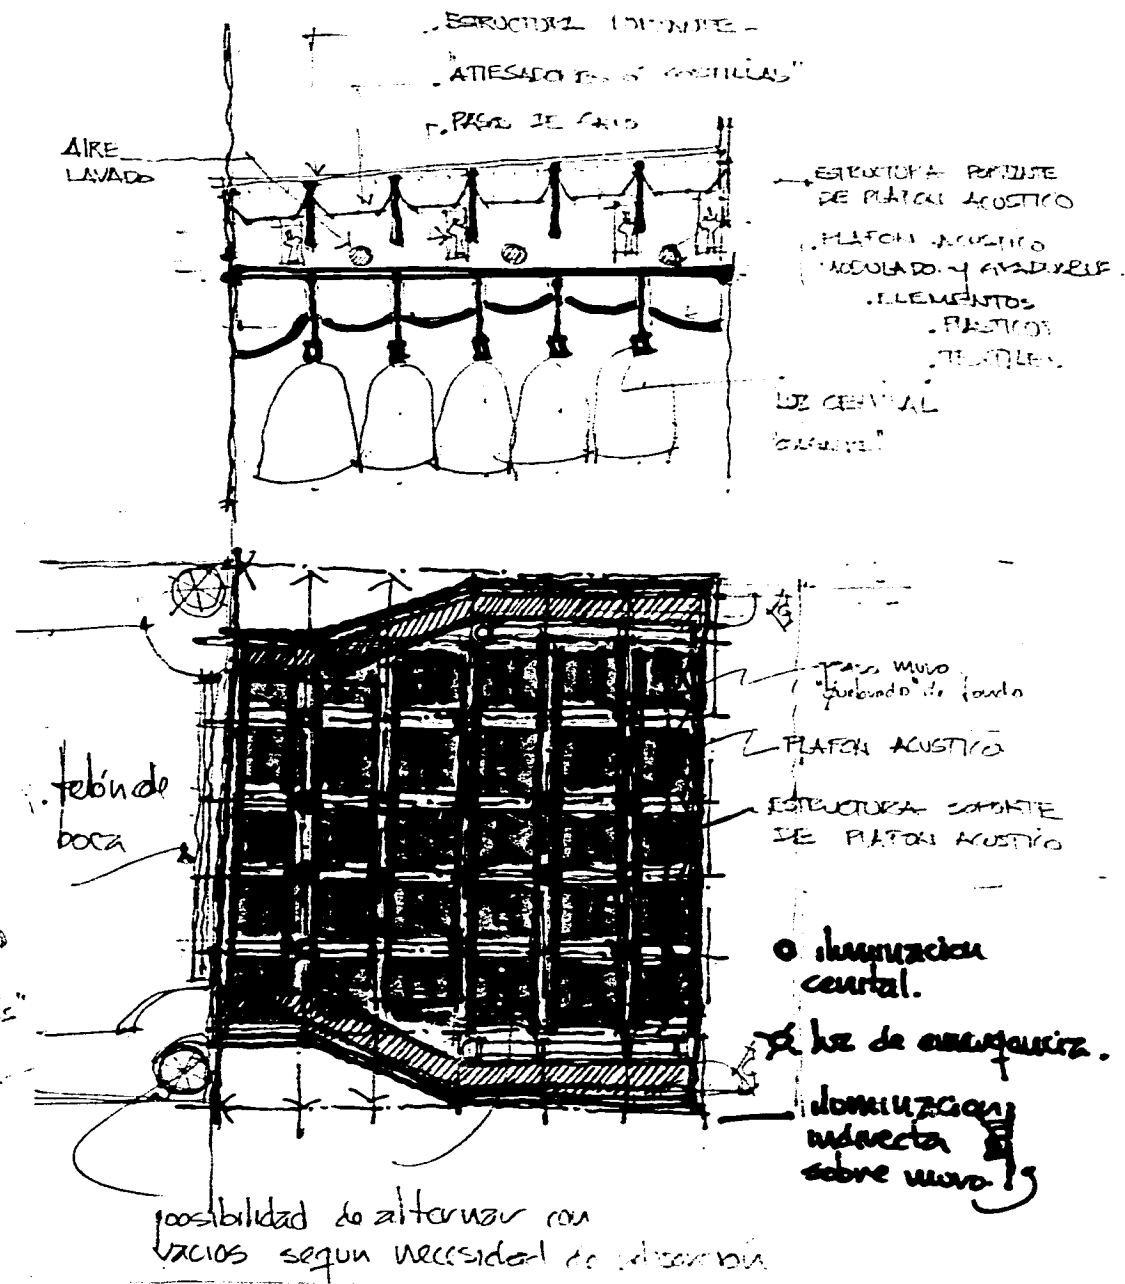 . ESTRUCTURA
. "ATIESADORES ó COSTILLAS"
. PASOS DE GATO
AIRE
LAVADO
ESTRUCTURA PORTANTE
DE PLAFON ACUSTICO
PLAFON ACUSTICO
MODULADO y GRADUABLE.
. ELEMENTOS
. PLASTICOS
. TEXTILES.
LUZ CENITAL
muro
"quebrado" de fondo
PLAFON ACUSTICO
. telón de
boca
ESTRUCTURA SOPORTE
DE PLAFON ACUSTICO
iluminacion
cenital.
luz de emergencia.
iluminacion
indirecta
sobre muro
posibilidad de alternar con
vacios segun necesidad de absorción